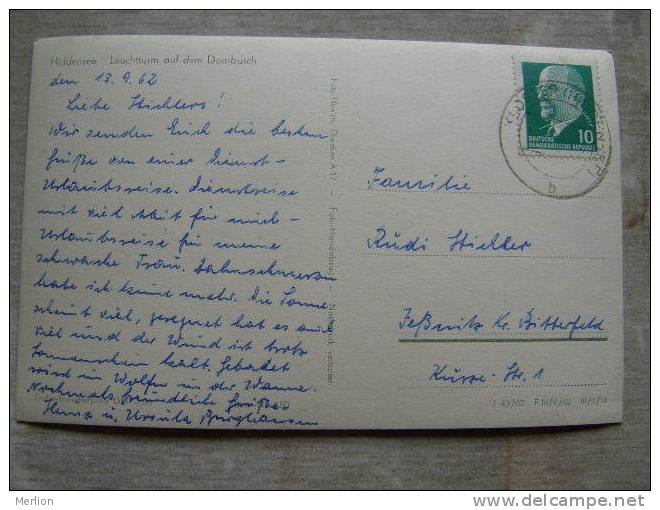 Hiddensee Leuchtturm auf dem Dornbusch
den 13.9.62
Liebe Stichlers!
Wir senden Euch die besten
Grüße von einer Dienst-
Urlaubsreise. Dienstreise
mit viel Arbeit für mich -
Urlaubsreise für meine
schwache Frau. Zahnschmerzen
habe ich keine mehr. Die Sonne
scheint viel, geregnet hat es auch
viel und der Wind ist trotz
Sonnenschein kalt. Gebadet
wird in Wolfen in der Wanne.
Nochmals freundliche Grüße
Heinz u. Ursula
DEUTSCHE
DEMOKRATISCHE REPUBLIK
10
b
Familie
Rudi Stichler
Jeßnitz Kr. Bitterfeld
Kurze-Str. 1
Merlion
http://www.delcampe.net